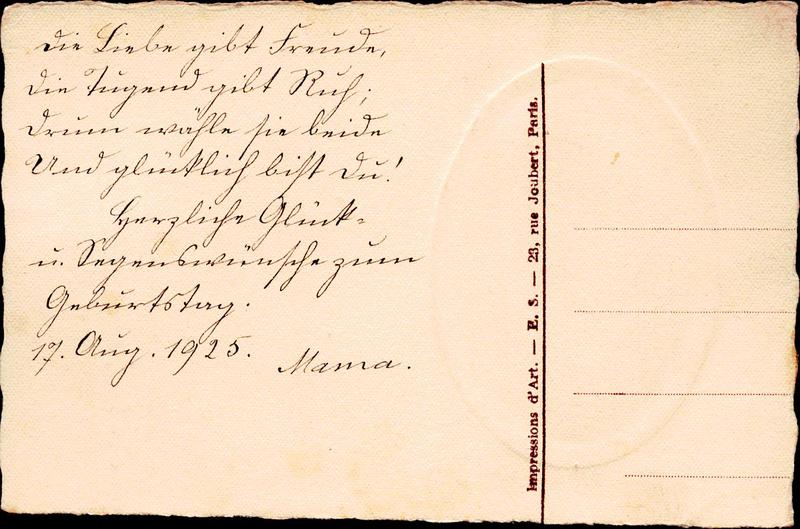 Die Liebe gibt Freude,
Die Tugend gibt Ruh;
Drum wähle sie beide
Und glücklich bist Du!
Herzliche Glück-
u. Segenswünsche zum
Geburtstag.
17. Aug. 1925.
Mama.
Impressions d'Art. — E. S. — 23, rue Joubert, Paris.